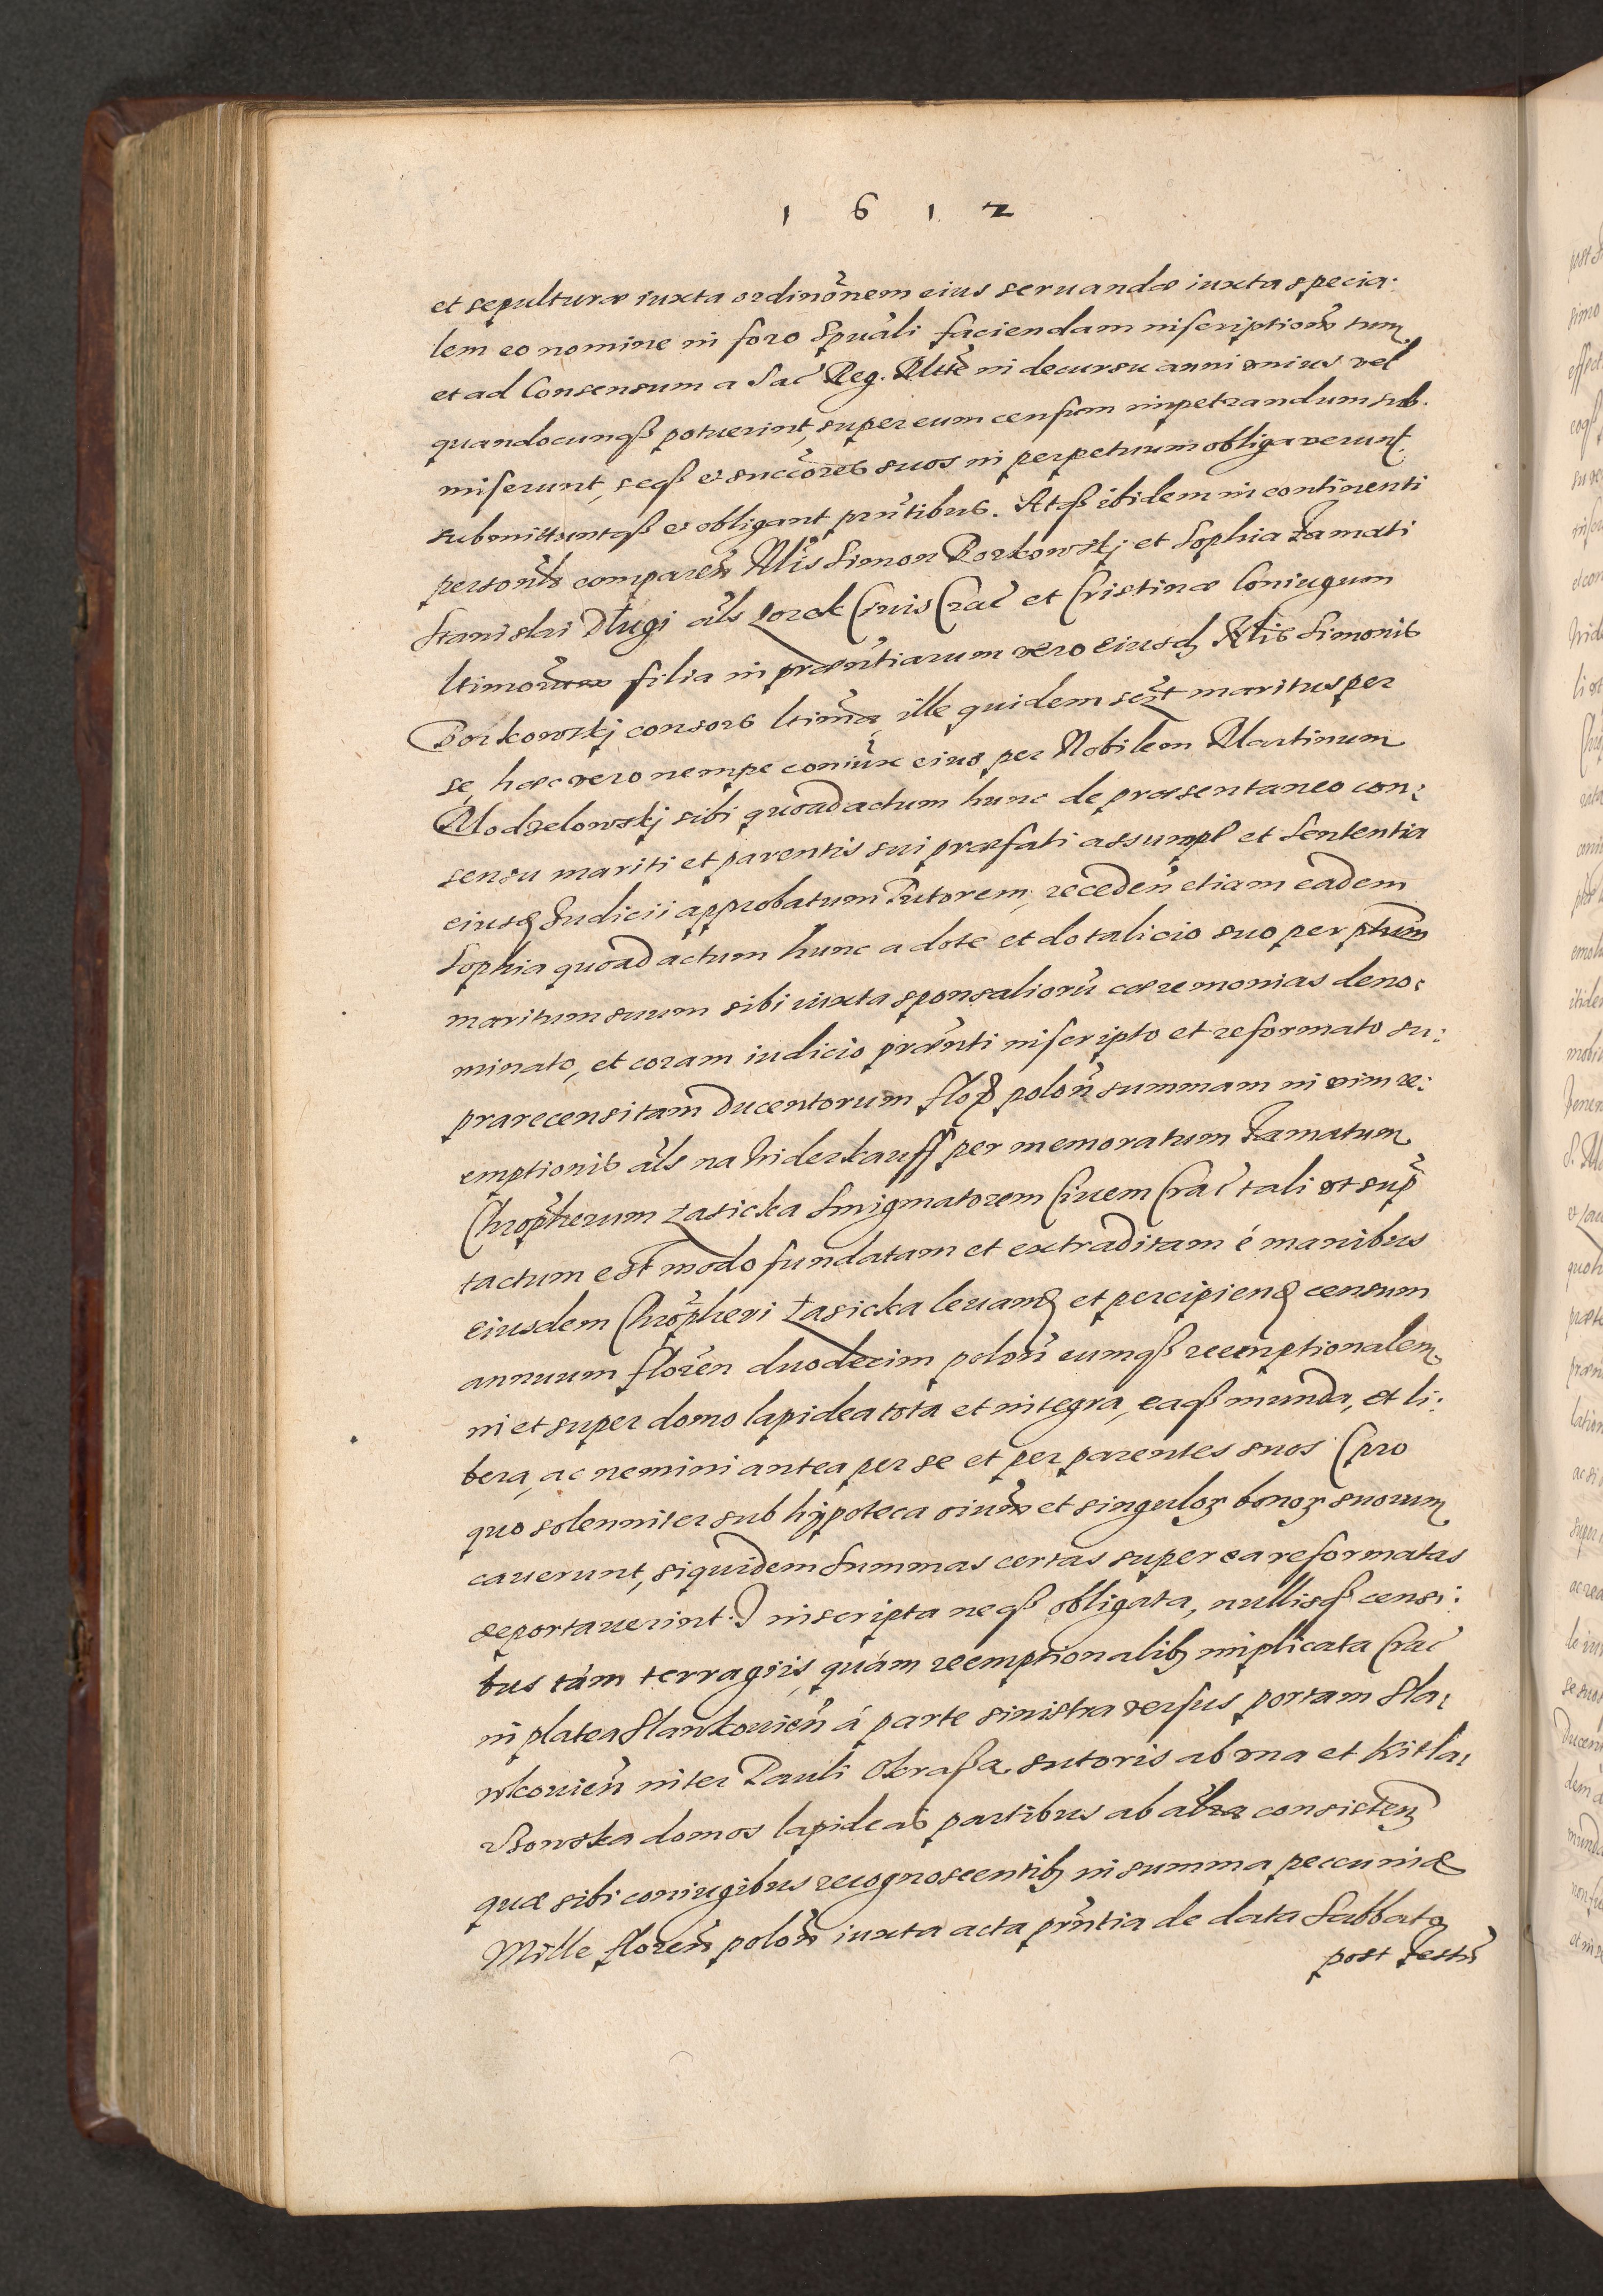 1 6 1 2
et sepulturæ iuxta ordinõnem eius seruandæ iuxta specia-
lem eo nomine in foro Spuãli faciendam inscriptionẽ tum
et ad Consensum a Sac̃ Reg. Mtte in decursu anni vnius vel
quandocunqꝫ potuerint, super eum censum impetrandum sub-
miserunt, seqꝫ et succõres suos in perpetuum obligaverunt.
submittuntqꝫ et obligant prñtibus. Atqꝫ ibidem in continenti
personlr comparen̄ Nlis Simon Borkowskj et Sophia famati
Stanislai Długi als Lorek Ciuis Crac̃ et Cristinæ Coniugum
ltimorum filia in præntiarum vero eiusdꝫ Nlis Simonis
Borkowskj consors ltima, ille quidem scꝫt maritus per
se, hæc vero nempe coniũx eius per Nobilem Martinum
Modzelowskj sibi quoad actum hunc de præsentaneo con-
sensu mariti et parentis sui præfati assumpt et Sententia
eiusdꝫ Iudicii approbatum Tutorem, receden̄ etiam eadem
Sophia quoad actum hunc a dote et dotalicio suo per ptum
maritum suum sibi iuxta sponsaliorũ cæremonias deno-
minato, et coram iudicio prænti inscripto et reformato su-
prarecensitam Ducentorum floꝝ polon̄ summam in vim re-
emptionis als na widerkauff per memoratum famatum
Chrõpherum Łasicka Smigmatorem Ciuem Crac̃ tali vt sup̃
tactum est modo fundatam et extraditam é manibus
eiusdem Chrõpheri Łasicka leuandꝫ et percipiendꝫ censum
annuum floren duodecim polon̄ eumqꝫ reemptionalem
in et super domo lapidea tota et integra, eaqꝫ munda, et li-
bera, ac nemini antea per se et per parentes suos (pro
quo solenniter sub hypoteca oium et singuloꝝ bonoꝝ suorum
cauerunt, siquidem Summas certas super ea reformatas
deportauerint.) inscripta neqꝫ obligata, nullisqꝫ censi-
bus tám terragiis, quám reemptionalibꝫ implicata Crac̃
in platea Slankouien̄ á parte sinistra versus portam Sla-
wkouien̄ inter Pauli Okraßa sutoris ab vna et Kisla-
domos lapideas partibus ab altra consisten̄
quæ sibi coniugibus recognoscentibꝫ in summa peccuniæ
Mille floren̄ polon̄ iuxta acta prñtia de data Sabbato
post festũ